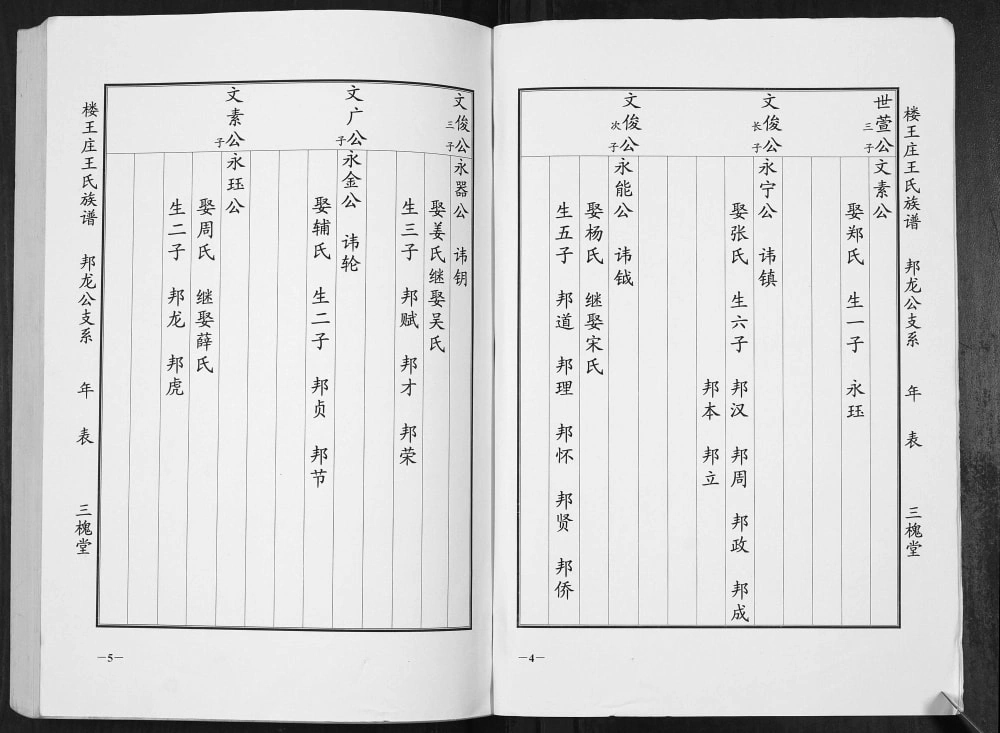 楼王庄王氏族谱 邦龙公支系 年表 三槐堂
世萱公三子 文素公
娶郑氏 生一子 永珏
文俊公长子 永宁公 讳镇
娶张氏 生六子 邦汉 邦周 邦政 邦成
邦本 邦立
文俊公次子 永能公 讳钺
娶杨氏 继娶宋氏
生五子 邦道 邦理 邦怀 邦贤 邦侨
—4—
文俊公三子 永器公 讳钥
娶姜氏继娶吴氏
生三子 邦赋 邦才 邦荣
文广公子 永金公 讳轮
娶辅氏 生二子 邦贞 邦节
文素公子 永珏公
娶周氏 继娶薛氏
生二子 邦龙 邦虎
楼王庄王氏族谱 邦龙公支系 年表 三槐堂
—5—